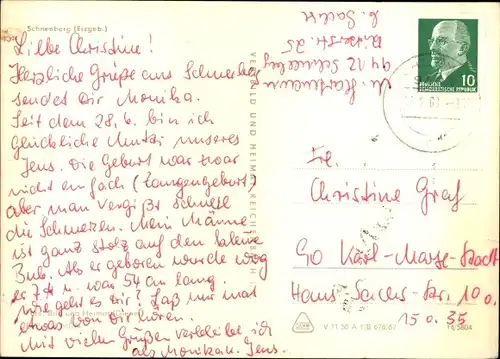 Schneeberg (Erzgeb.)
Liebe Christine!
Herzliche Grüße aus Schneeberg
sendet Dir Monika.
Seit dem 28.6. bin ich
glückliche Mutti unseres
Jens. Die Geburt war zwar
nicht einfach (Zangengeburt)
aber man vergißt schnell
die Schmerzen. Mein Männe
ist ganz stolz auf den kleinen
Bub. Als er geboren wurde wog
er 7 u. war 54 cm lang.
Wie geht es Dir? Laß mir mal
etwas von Dir hören.
Mit vielen Grüßen verbleibe ich
als Monika u. Jens.
VERLAG BILD UND HEIMAT REICHENBACH
9412 Schneeberg
10
DEUTSCHE
DEMOKRATISCHE REPUBLIK
Frl.
Christine Graf
90 Karl-Marx-Stadt
Hans-Sachs-Str. 10
15 0. 35
V 11 50 A 1/B 676/67
14/5804